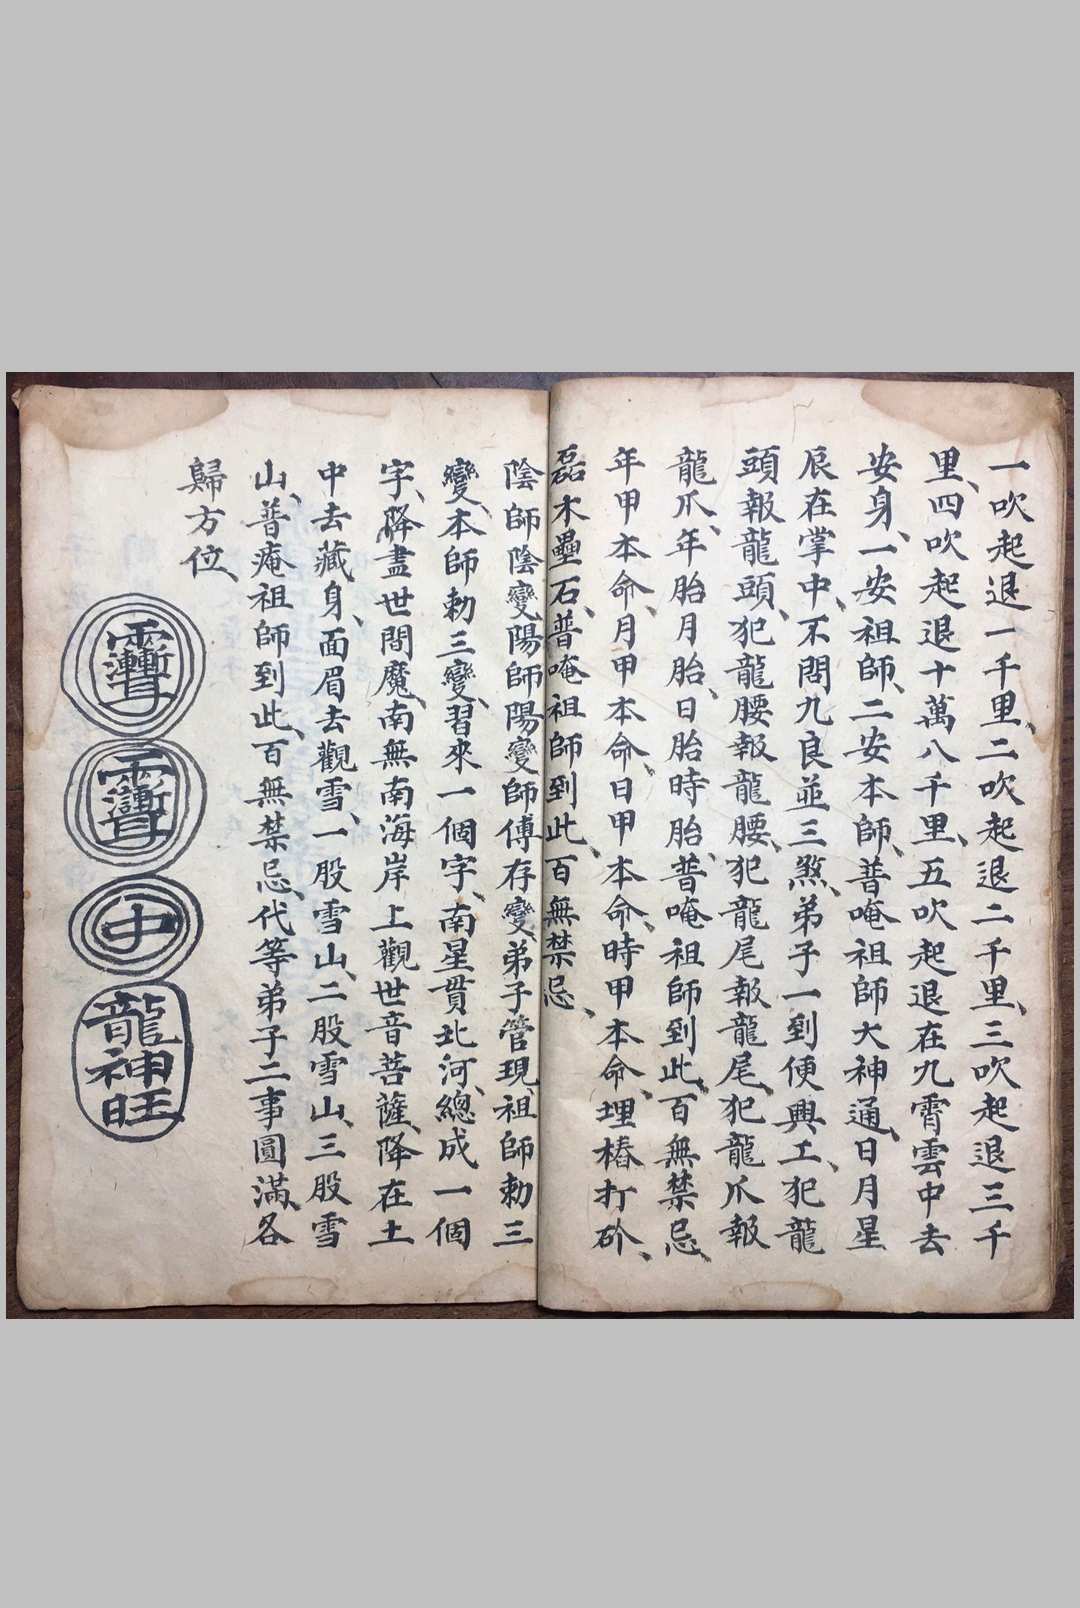 一吹起退一千里、二吹起退二千里、三吹起退三千
里、四吹起退十萬八千里、五吹起退在九霄雲中去
安身、一安祖師、二安本師、普唵祖師大神通、日月星
辰在掌中、不問九良並三煞、弟子一到便興工、犯龍
頭報龍頭、犯龍腰報龍腰、犯龍尾報龍尾、犯龍爪報
龍爪、年胎月胎、日胎時胎、普唵祖師到此、百無禁忌、
年甲本命、月甲本命、日甲本命、時甲本命、埋樁打砛、
磊木壘石、普唵祖師到此、百無禁忌、
陰師陰變陽師陽變師傅存變弟子管現、祖師勅三
變、本師勅三變、習來一個字、南星貫北河、總成一個
字、降盡世間魔、南無南海岸上觀世音菩薩、降在土
中去藏身、面眉去觀雪、一股雪山、二股雪山、三股雪
山、普庵祖師到此、百無禁忌、代等弟子二事圓滿、各
歸方位、
中
龍神旺